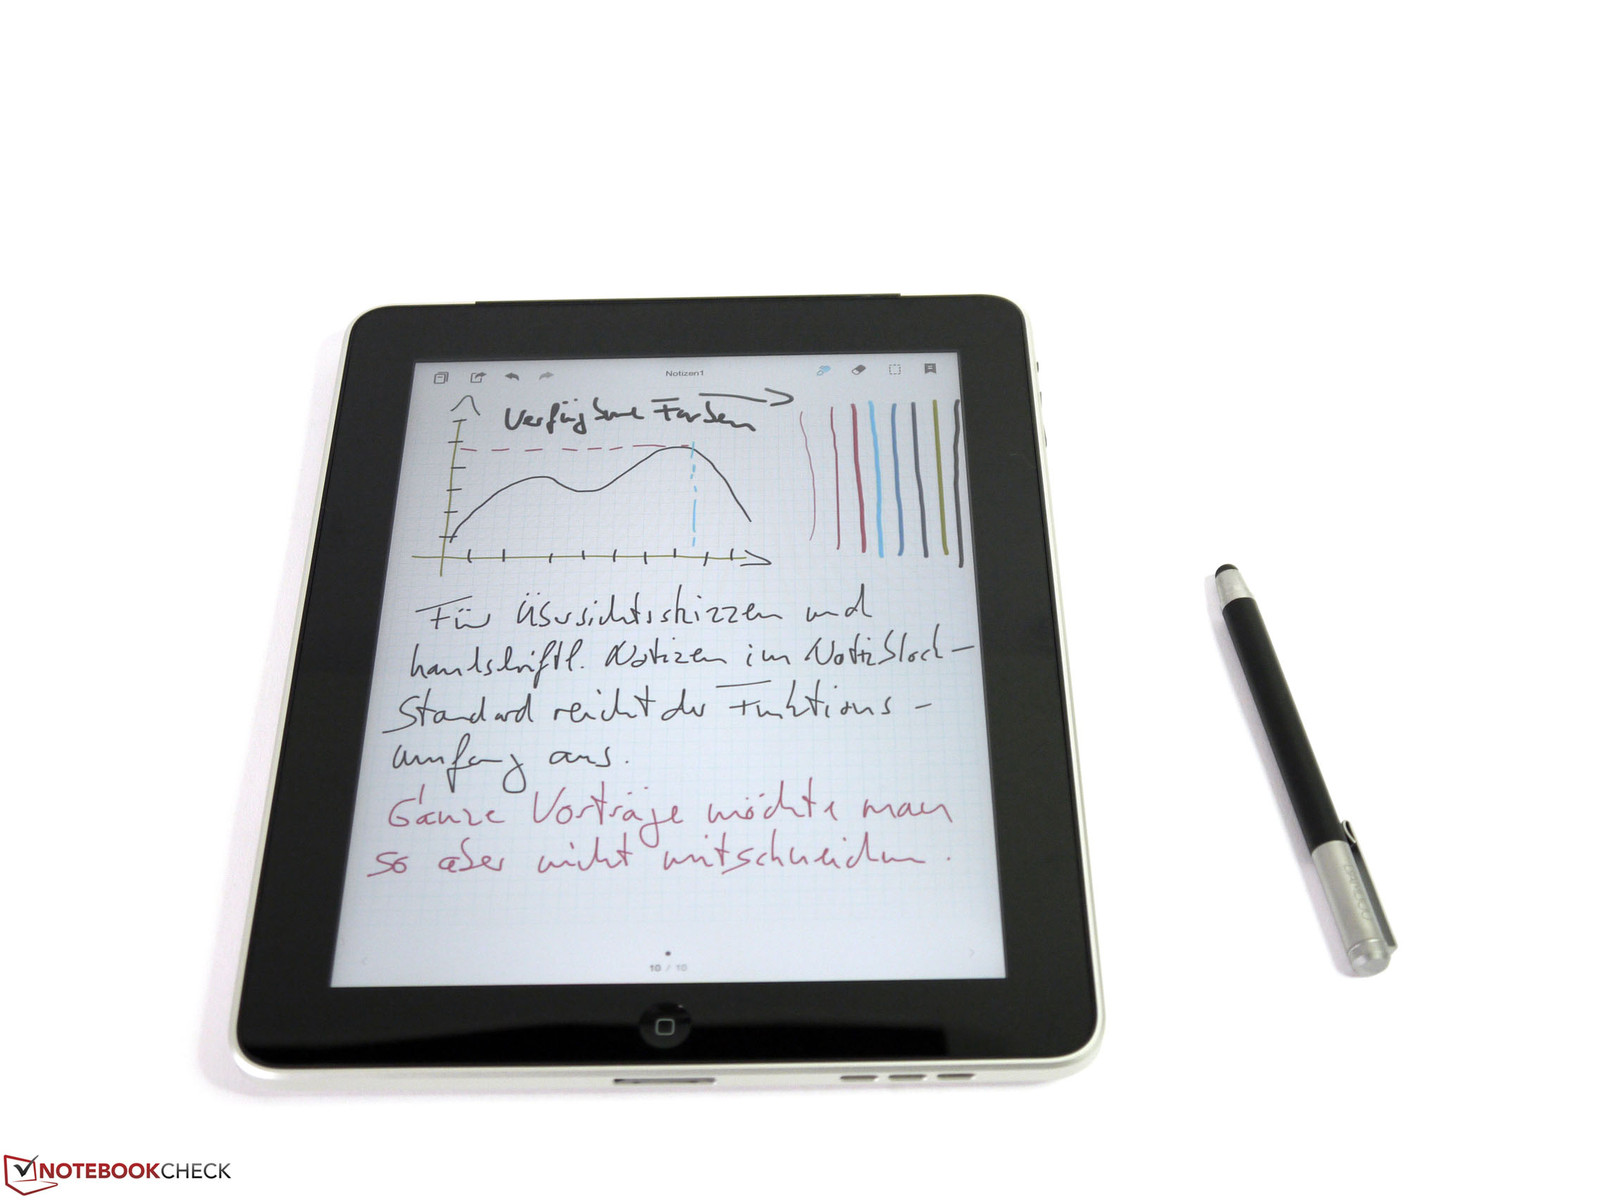 Notizen1
Verfügbare Farben
Für Übersichtsskizzen und
handschriftl. Notizen im Notizblock-
Standard reicht der Funktions-
umfang aus.
Ganze Vorträge möchte man
so aber nicht mitschneiden.
10 / 10
BAMBOO
NOTEBOOKCHECK